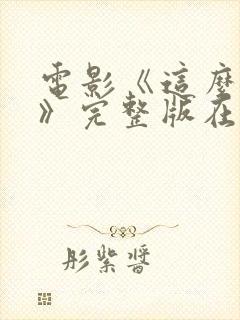 電影《這麼
》完整版在
彤紫醬